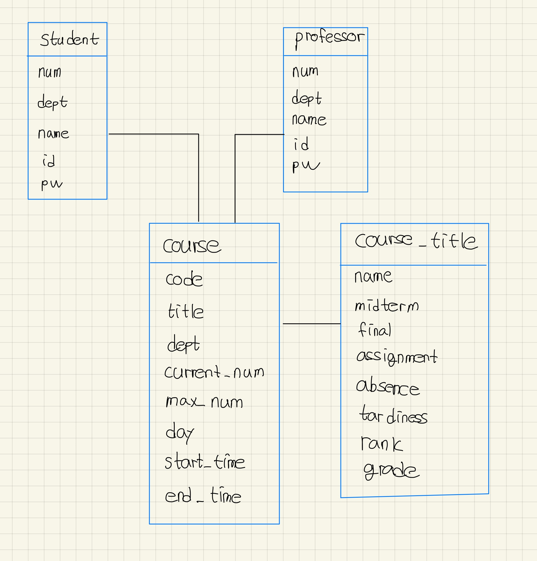 student
num
dept
name
id
pw
professor
num
dept
name
id
pw
course
code
title
dept
current_num
max_num
day
start_time
end_time
course_title
name
midterm
final
assignment
absence
tardiness
rank
grade